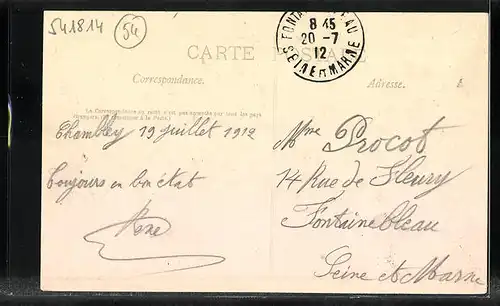 541814
54
FONTAINEBLEAU
8 45
20-7
12
SEINE ET MARNE
CARTE POSTALE
Correspondance.
Adresse.
La Correspondance au recto n'est pas acceptée par tous les pays
Chambley 19 juillet 1912
Toujours en bon état
Mme Procot
14 Rue de Fleury
Fontainebleau
Seine et Marne